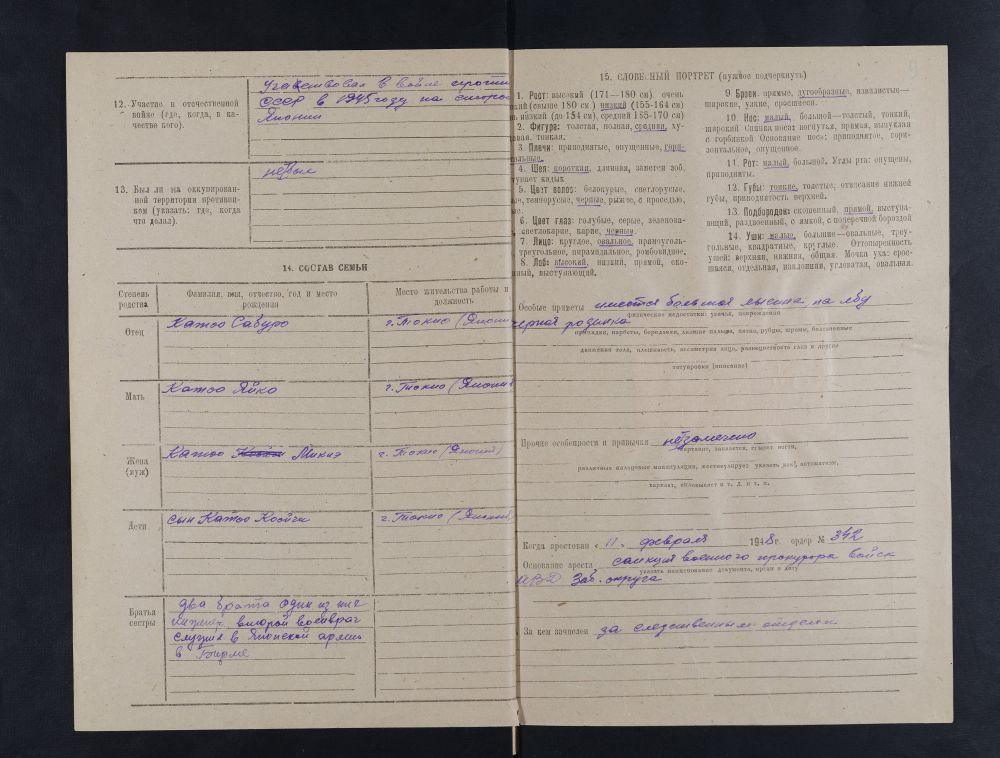 12. Участие в отечественной
войне (где, когда, в ка-
честве кого).
Участвовал в войне против
СССР в 1945 году на стороне
Японии
13. Был ли на оккупирован-
ной территории противни-
ком (указать: где, когда
что делал).
не был
14. СОСТАВ СЕМЬИ
Степень
родства
Фамилия, имя, отчество, год и место
рождения
Место жительства работы и
должность
Отец
Катоо Сабуро
г. Токио (Япони
Мать
Катоо Яйко
г. Токио (Япония
Жена
(муж)
Катоо Микиэ
г. Токио (Япония)
Дети
сын Катоо Коойчи
г. Токио (Япония
Братья
сестры
два брата один из них
инженер, второй военврач
служил в Японской армии
в Бирме
15. СЛОВЕСНЫЙ ПОРТРЕТ (нужное подчеркнуть)
1. Рост: высокий (171—180 см) очень
кий (свыше 180 см) низкий (155-164 см)
низкий (до 154 см), средний 165-170 см)
2. Фигура: толстая, полная, средняя, ху-
тонкая.
3. Плечи: приподнятые, опущенные, гори-
льные.
4. Шея: короткая, длинная, заметен зоб,
тупает кадык
5. Цвет волос: белокурые, светлорусые,
темнорусые, черные, рыжие, с проседью,
6. Цвет глаз: голубые, серые, зеленова-
светлокарие, карие, черные.
7. Лицо: круглое, овальное, прямоуголь-
треугольное, пирамидальное, ромбовидное.
8. Лоб: высокий, низкий, прямой, ско-
ный, выступающий.
9 Брови: прямые, дугообразные, извилистые—
широкие, узкие, сросшиеся.
10 Нос: малый, большой—толстый, тонкий,
широкий Спинка носа: вогнутая, прямая, выпуклая
с горбинкой Основание носа: приподнятое, гори-
зонтальное, опущенное.
11. Рот: малый, большой. Углы рта: опущены,
приподняты.
12. Губы: тонкие, толстые, отвисание нижней
губы, приподнятость верхней.
13. Подбородок: скошенный, прямой, выступа-
ющий, раздвоенный, с ямкой, с поперечной бороздой
14. Уши: малые, большие—овальные, треу-
гольные, квадратные, круглые. Оттопыренность
ушей: верхняя, нижняя, общая. Мочка уха: срос-
шаяся, отдельная, наклонная, угловатая, овальная.
Особые приметы имеется большая лысина на лбу
физические недостатки: увечья, повреждения
черная родинка
бородавки, лишние пальцы, пятна, рубцы, шрамы, болезненные
движения тела, плешивость, асимметрия лица, разноцветность глаз и другие
татуировки (описание)
Прочие особенности и привычки не замечено
картавит, заикается, грызет ногти,
различные пальцевые манипуляции, жестикулирует указать как, автоматизм,
харкает, сплевывает и т. д. и т. п.
Когда арестован « 11 » февраля 1948 г. ордер № 342
Основание ареста санкция военного прокурора войск
указать наименование документа, орган и дату
МВД Заб. округа
За кем зачислен за следственным отделом